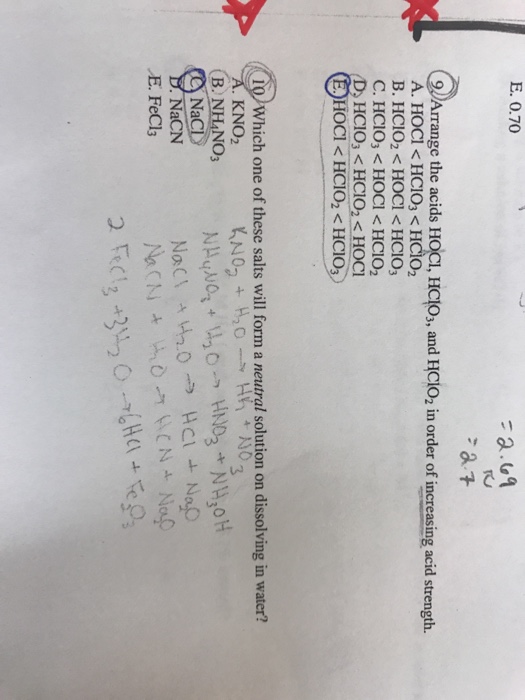 E. 0.70
= 2.69
≈ 2.7
9. Arrange the acids HOCl, HClO₃, and HClO₂ in order of increasing acid strength.
A. HOCl < HClO₃ < HClO₂
B. HClO₂ < HOCl < HClO₃
C. HClO₃ < HOCl < HClO₂
D. HClO₃ < HClO₂ < HOCl
E. HOCl < HClO₂ < HClO₃
10. Which one of these salts will form a neutral solution on dissolving in water?
A. KNO₂
B. NH₄NO₃
C. NaCl
D. NaCN
E. FeCl₃
KNO₂ + H₂O → + NO₃
NH₄NO₃ + H₂O → HNO₃ + NH₃OH
NaCl + H₂O → HCl + Na₂O
NaCN + H₂O → HCN + Na₂O
2 FeCl₃ + 3H₂O → 6HCl + Fe₂O₃